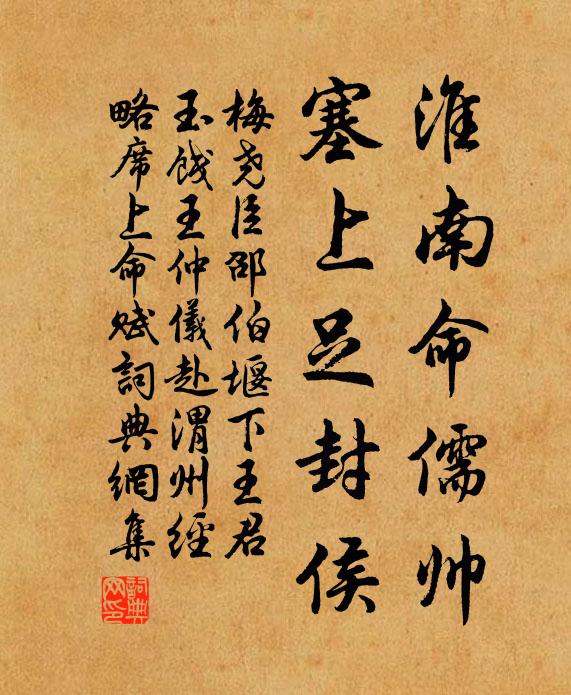 淮南命儒帅
塞上足封侯
梅尧臣邵伯堰下王君
玉餞王仲儀赴渭州經
略席上命赋詞典網集
詞典网印